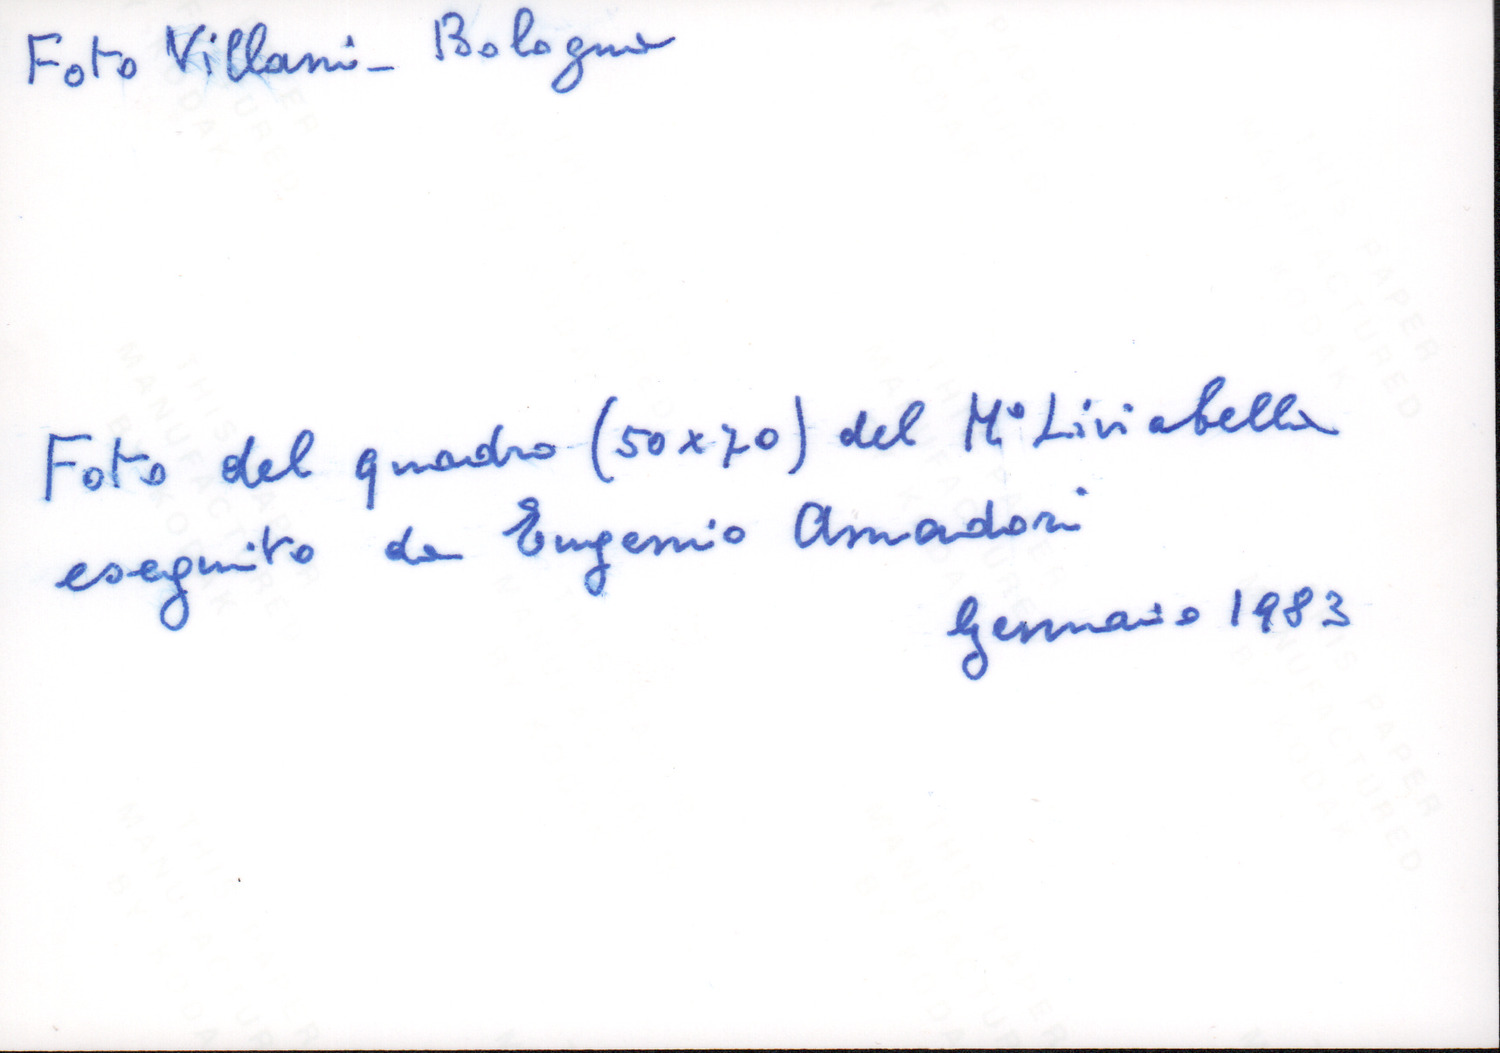 Foto Villani - Bologna
Foto del quadro (50x70) del M° Liviabella
eseguito da Eugenio Amadori
Gennaio 1983
THIS PAPER
MANUFACTURED
BY KODAK